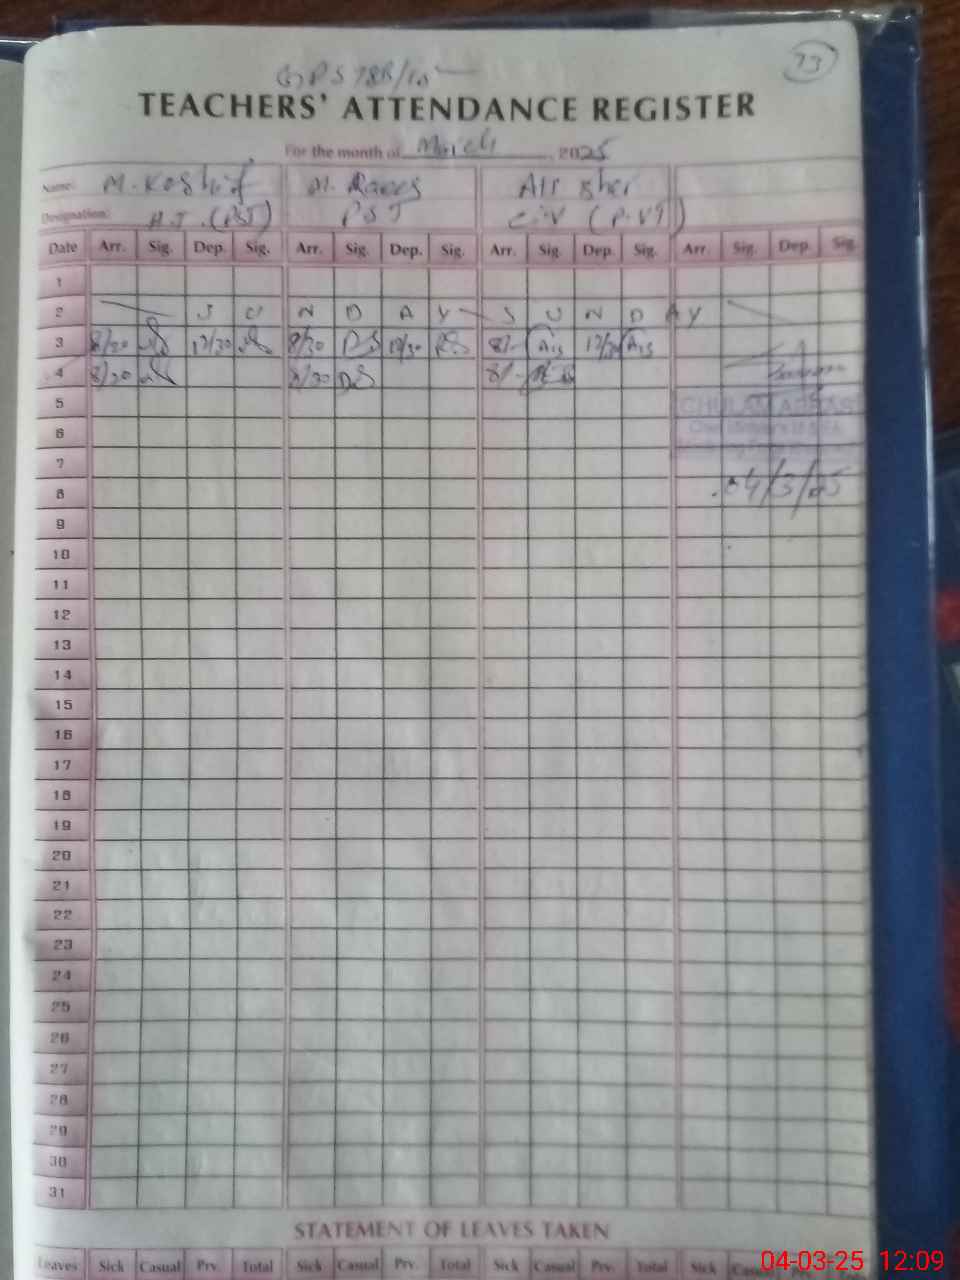 73
GPS 78R/10
TEACHERS' ATTENDANCE REGISTER
For the month of March, 2025
Name: M. Kashif M. Raees Ali Sher
Designation: H.T. (PST) PST C-IV (P-VT)
Date Arr. Sig. Dep. Sig. Arr. Sig. Dep. Sig. Arr. Sig. Dep. Sig. Arr. Sig. Dep. Sig.
1
2 S U N D A Y S U N D A Y
3 8/30 12/30 8/30 12/30 8/- 12/30
4 8/30 8/30 8/-
5 GHULAM
6
7
8 04/3/25
9
10
11
12
13
14
15
16
17
18
19
20
21
22
23
24
25
26
27
28
29
30
31
STATEMENT OF LEAVES TAKEN
Leaves Sick Casual Prv. Total Sick Casual Prv. Total Sick Casual Prv. Total Sick Casual
04-03-25 12:09